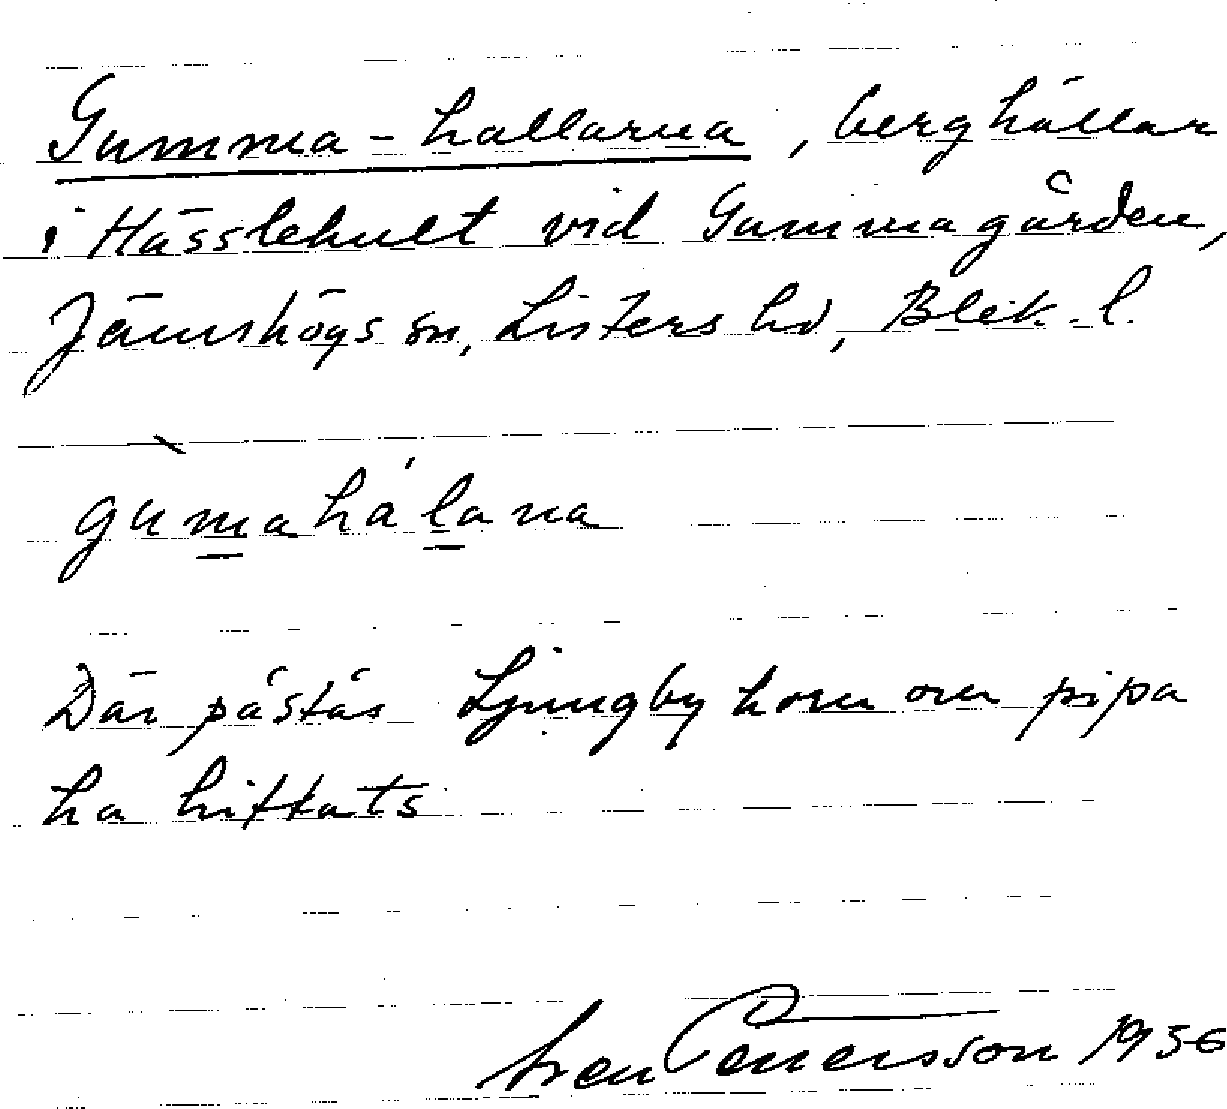 Gumma-hallarna, berghällar
i Hässlehult vid Gummagården,
Jämshögs sn, Listers hd, Blek. l.
gùmahálana
Där påstås Ljungby horn om pipa
ha hittats
Sven Petersson 1956